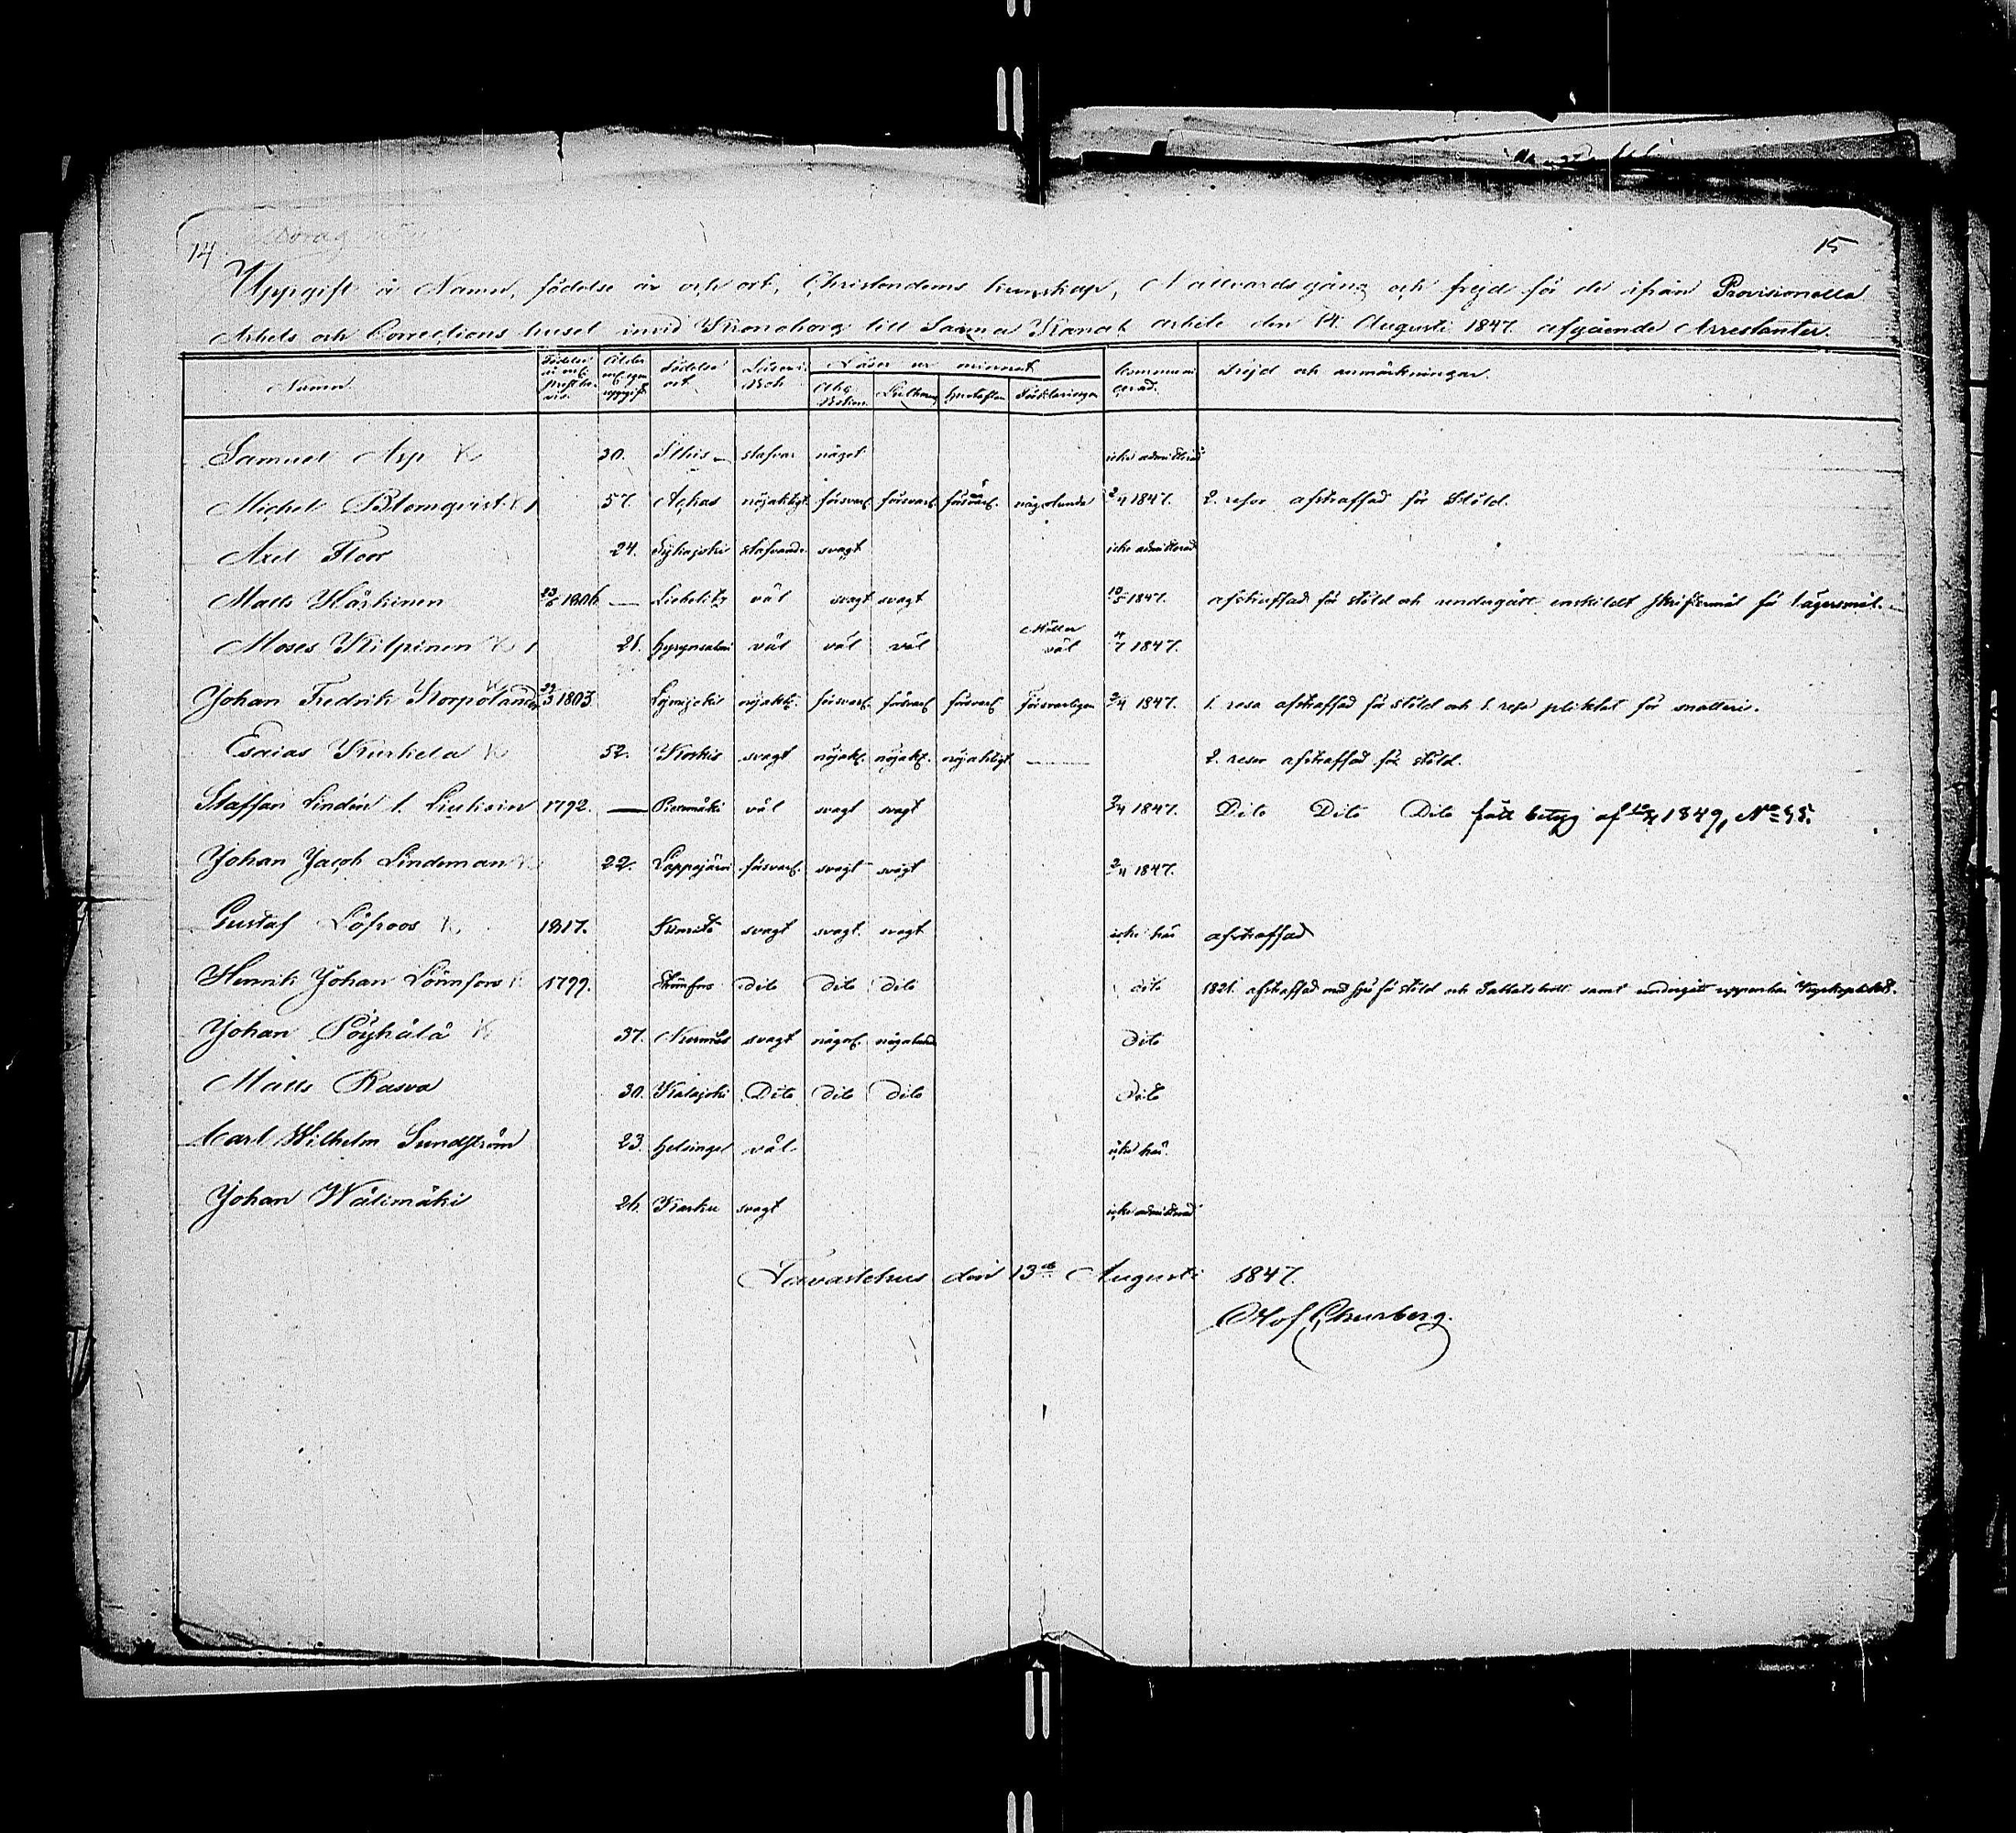 14
15
Uppgift å Namn, födelse år och ort, Christendoms kunskap, Nattvardsgång och frejd för de ifrån Provisionella
Arbets och Corrections huset invid Kronoborg till Saima Kanal arbete den 14 Augusti 1847 afgående Arrestanter.
Namn Födelse år enl. prestbevis. Ålder enl. egen uppgift Födelse ort. Läser i Bok Läser ur minnet Communicerad. Frejd och anmärkningar.
Abc Boken Lutherus Hustaflan Förklaringen
Samuel Asp K 30. Sthis stafvar något icke admitterad
Michel Blomqvist K 57. Achas nöjaktigt försvarl. försvarl. försvarl. någorlunda 2/4 1847. 2. resor afstraffad för Stöld.
Axel Floor 24. Sijkajoki stafvande svagt icke admitterad
Matts Kärkinen 23/6 1806 — Liebelitz väl svagt svagt 10/5 1847. afstraffad för stöld och undergått enskildt skriftermål för lägersmål.
Moses Kilpinen K 21. Hyrynsalmi väl väl väl Möller väl 4/7 1847.
Johan Fredrik Korpolander K 29/3 1803 nöjakt. försvarl. försvarl. försvarl. Försvarligen 2/4 1847. 1. resa afstraffad för stöld och 1. resa pliktat för snatteri.
Esaias Kurkela K 52. Korkis svagt nöjakl. nöjakt. nöjaktigt — 2. resor afstraffad för stöld.
Staffan Lindén l. Liukoin 1792. — Piexmäki väl svagt svagt 2/4 1847. Dito Dito Dito fått betyg af 1849, No 55.
Johan Jacob Lindeman K 22. Lappajärvi försvarl. svagt svagt 2/4 1847.
Gustaf Löfroos K 1817. Kimito svagt svagt svagt icke här afstraffad
Henrik Johan Lönnfors K 1799. Strömfors Dito Dito Dito dito 1821. afstraffad med spö för stöld och Sabbatsbrott samt undergått uppenbar Kyrkoplikt.
Johan Pöyhälä K 37. Nurmis svagt någorl. någorlunda Dito
Matts Rasva 30. Kalajoki Dito dito Dito Dito
Carl Wilhelm Sundström 23. Helsinge väl icke här.
Johan Wälimäki 26. Karku svagt icke admitterad
Tavastehus den 13de Augusti 1847.
Olof Churberg.